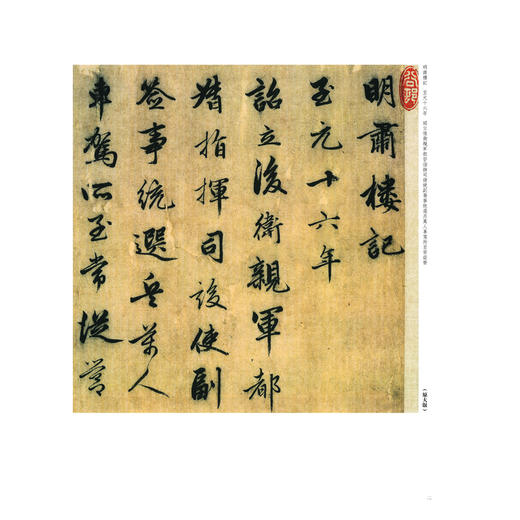 明肅樓記 至元十六年 詔立後衛親軍都督指揮司設使副簽事統選兵萬人車駕所至常從營
明肅樓記
至元十六年
詔立後衛親軍都
督指揮司設使副
簽事統選兵萬人
車駕所至常從營
(原大版)